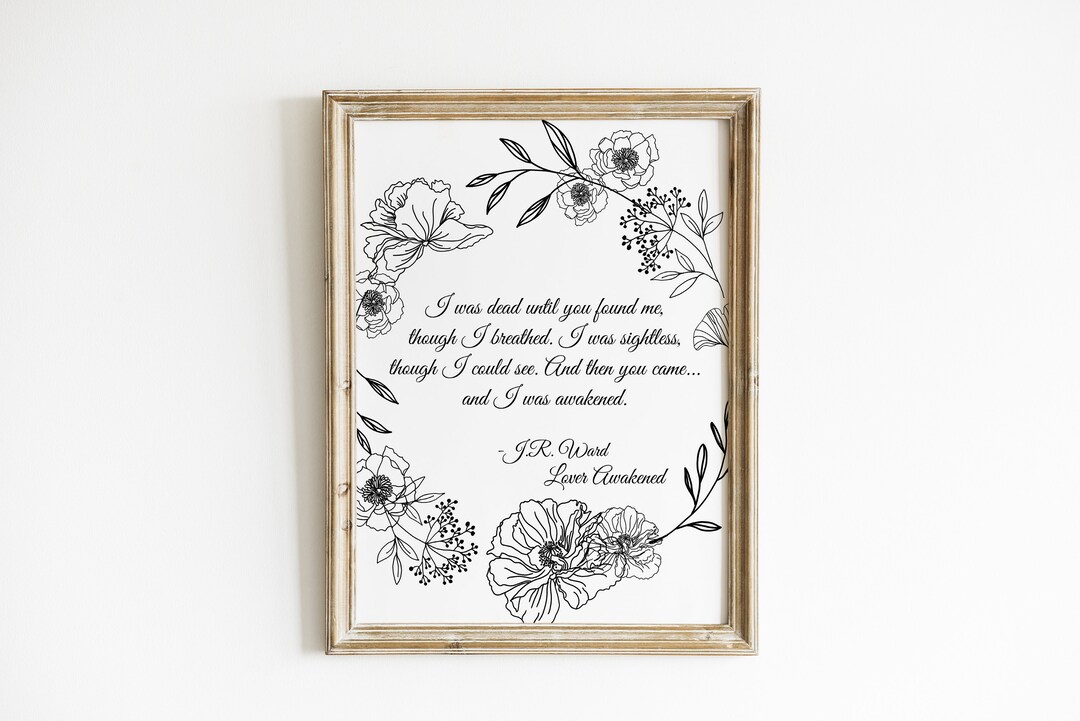 I was dead until you found me,
though I breathed. I was sightless,
though I could see. And then you came...
and I was awakened.
-J.R. Ward
Lover Awakened